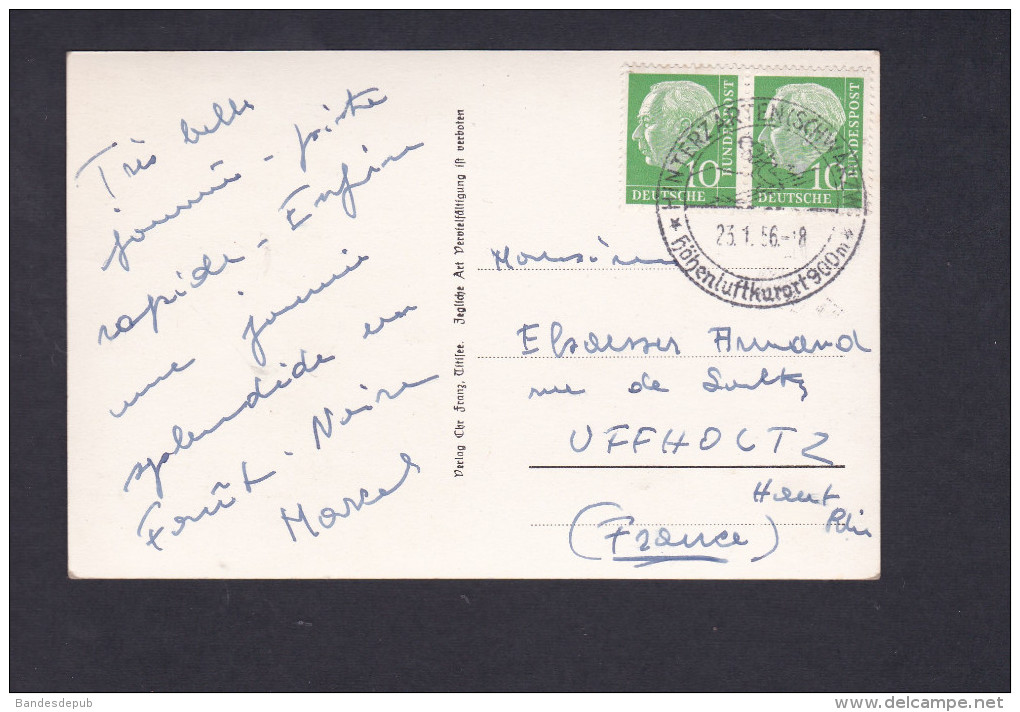 Très belle
journée - piste
rapide - Enfin
une journée
splendide en
Forêt. Noire
Marcel
Verlag Chr. Franz, Titisee. Jegliche Art Vervielfältigung ist verboten
DEUTSCHE BUNDESPOST 10
DEUTSCHE BUNDESPOST 10
HINTERZARTEN (SCHWARZW.)
23.1.56.-18
Höhenluftkurort 900m
Monsieur
Elsaesser Armand
rue de Soultz
UFFHOLTZ
Haut
Rhin
(France)
Bandesdepub
www.delcampe.net